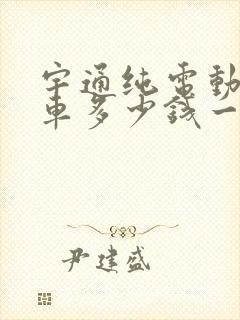 宇通纯電動
車多少錢一
尹建盛